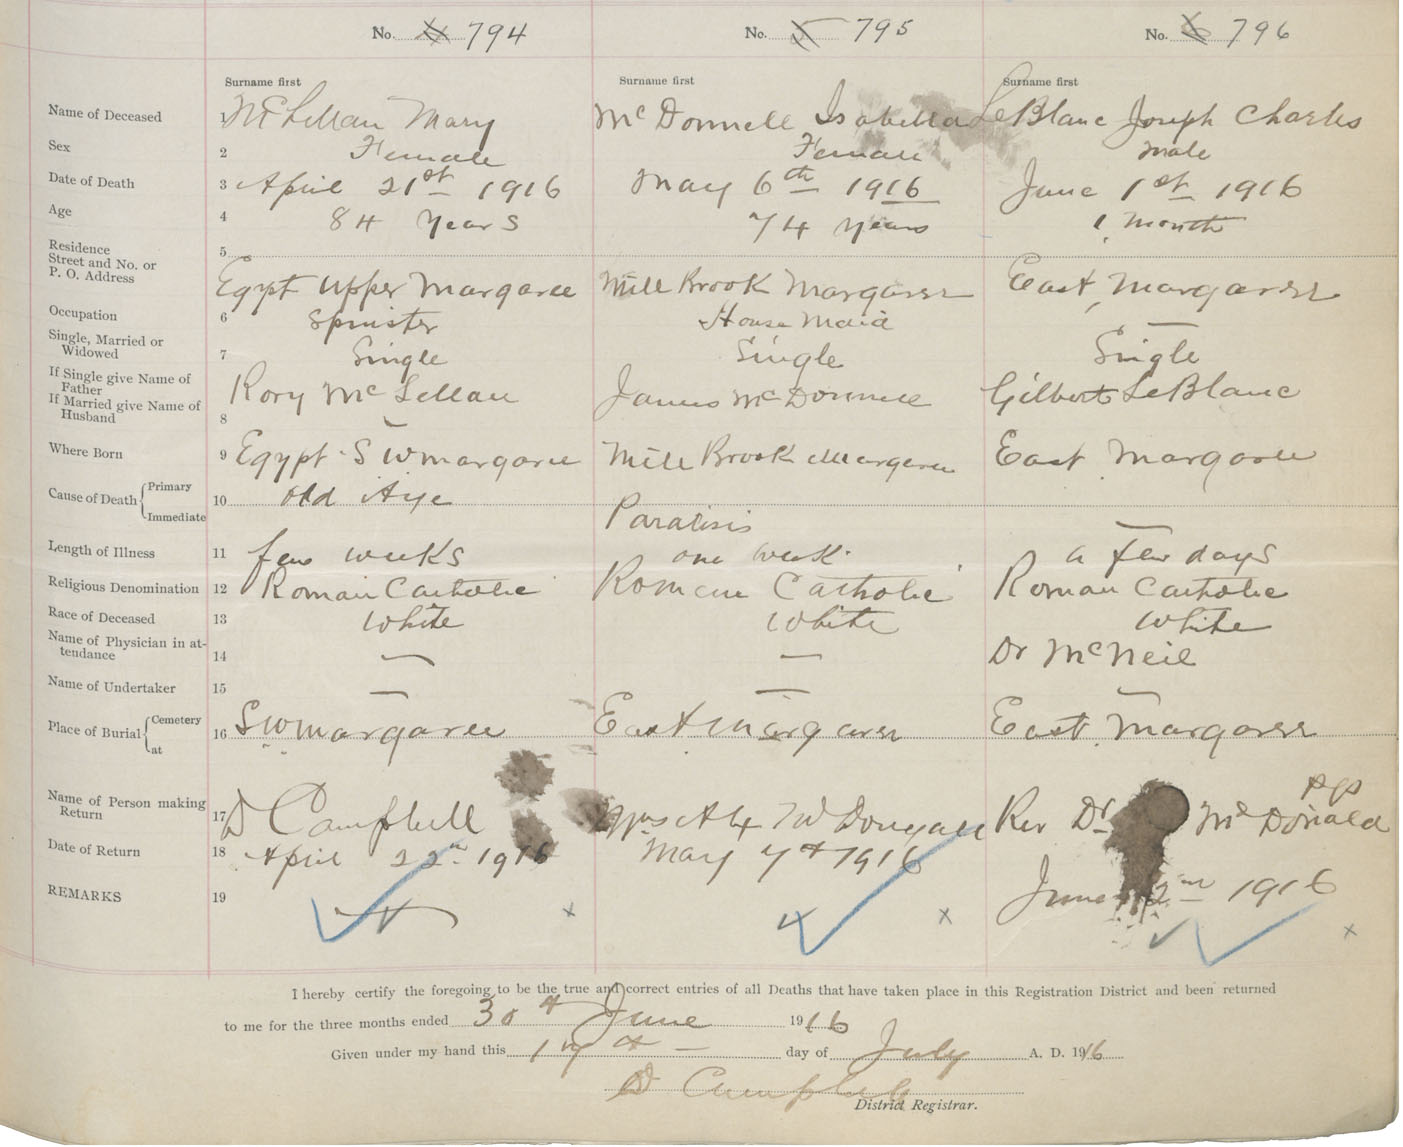 No. 794 No. 795 No. 796
Surname first Surname first Surname first
Name of Deceased 1 McLellan Mary McDonnell Isabella LeBlanc Joseph Charles
Sex 2 Female Female Male
Date of Death 3 April 21st 1916 May 6th 1916 June 1st 1916
Age 4 84 Years 74 years 1 month
Residence
Street and No. or
P. O. Address 5 Egypt Upper Margaree Mill Brook Margaree East Margaree
Occupation 6 Spinster House Maid —
Single, Married or
Widowed 7 Single Single Single
If Single give Name of
Father
If Married give Name of
Husband 8 Rory McLellan James McDonnell Gilbert LeBlanc
Where Born 9 Egypt S W Margaree Mill Brook Margaree East Margaree
Cause of Death { Primary
Immediate 10 old Age Paralisis —
Length of Illness 11 few weeks one week a few days
Religious Denomination 12 Roman Catholic Roman Catholic Roman Catholic
Race of Deceased 13 White White White
Name of Physician in at-
tendance 14 — — Dr McNeil
Name of Undertaker 15 — — —
Place of Burial { Cemetery
at 16 S W Margaree East Margaree East Margaree
Name of Person making
Return 17 D Campbell Mrs McDougall Rev Dr McDonald PP
Date of Return 18 April 22n 1916 May 7th 1916 June 2nd 1916
REMARKS 19
I hereby certify the foregoing to be the true and correct entries of all Deaths that have taken place in this Registration District and been returned
to me for the three months ended 30th June 1916
Given under my hand this 17th day of July A. D. 1916
D Campbell
District Registrar.